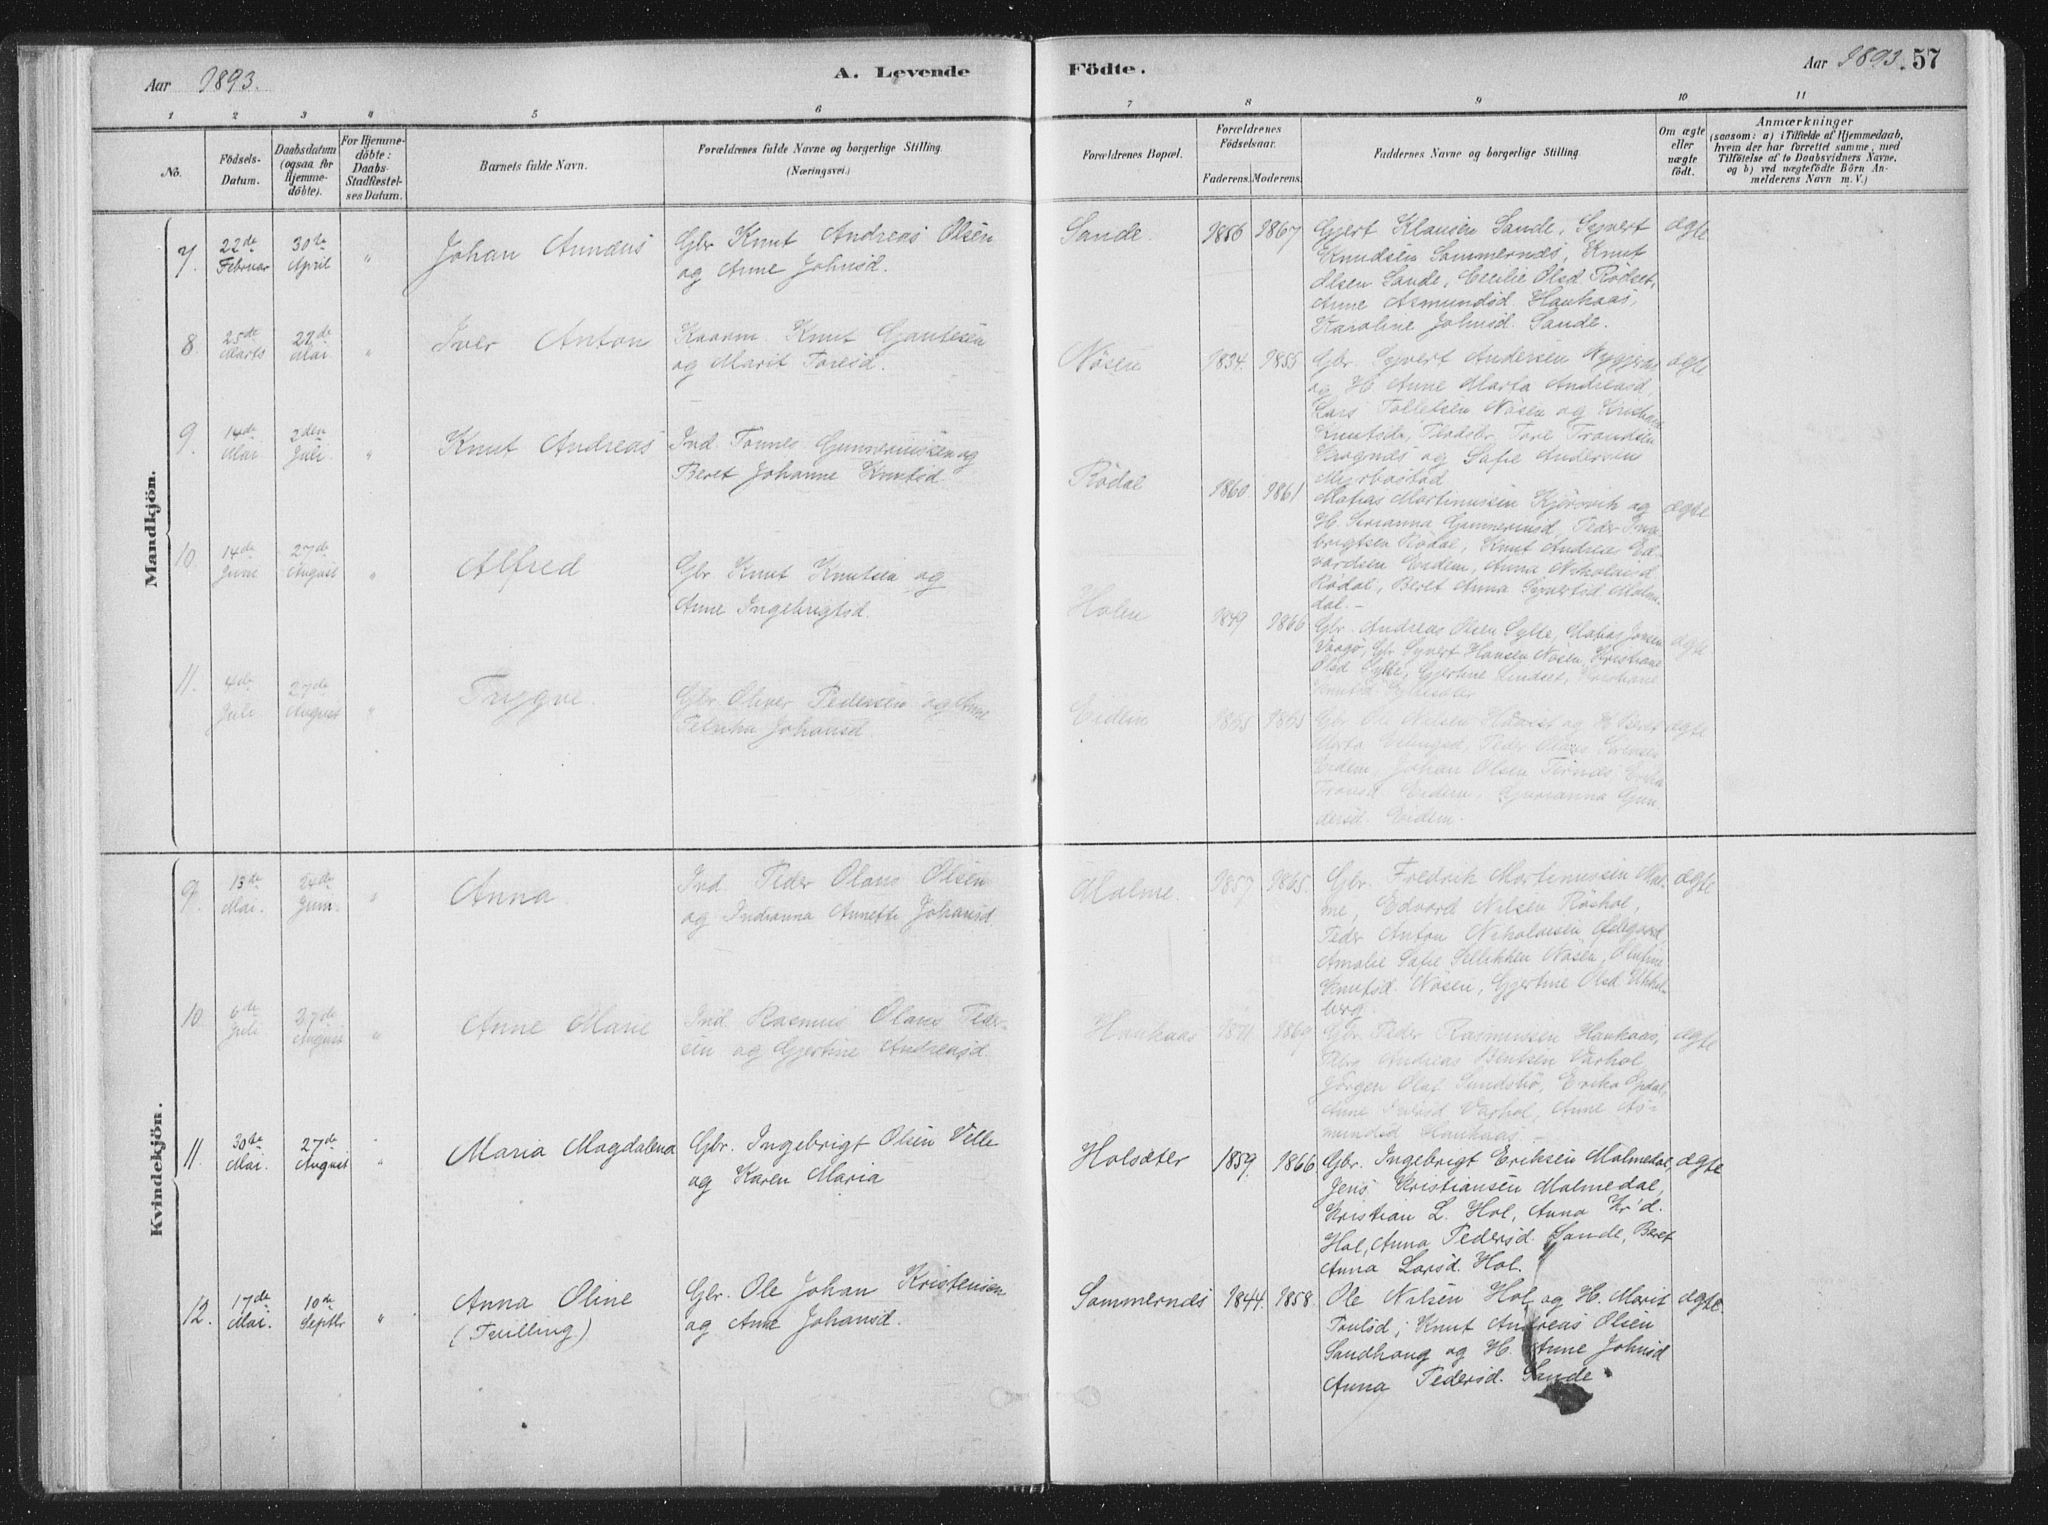 Aar 1893.
A. Levende
Födte.
Aar 1893. 57
1 2 3 4 5 6 7 8 9 10 11
No.
Födsels-
Datum.
Daabsdatum
(ogsaa for
Hjemme-
döbte).
For Hjemme-
döbte:
Daabs-
Stadfæstel-
ses Datum.
Barnets fulde Navn.
Forældrenes fulde Navne og borgerlige Stilling.
(Næringsvei.)
Forældrenes Bopæl.
Forældrenes
Födselsaar.
Faderens. Moderens.
Faddernes Navne og borgerlige Stilling.
Om ægte
eller
uægte
födt.
Anmærkninger
(saasom: a) i Tilfælde af Hjemmedaab,
hvem der har forrettet samme, med
Tilföielse af to Daabsvidners Navne,
og b) ved uægtefödte Börn An-
melderens Navn m. V.)
Mandkjön.
7. 22de Februar 30te April " Johan Anndus
Gbr Knut Andreas Olsen
og Anne Johnsd.
Sande. 1856 1867
Gjert Klausen Sande, Syvert
Knudsen Sommernes, Knut
Olsen Sande, Cecilie Olsd Rödset,
Anne Asmundsd. Haukaas,
Karoline Johnsd. Sande.
ægte
8. 25de Marts 22de Mai. " Iver Anton
Kaarm. Knut Gautesen
og Marit Toresd.
Nösen 1834. 1855
Gbr. Syvert Andersen
og H. Anne Marta Andreasd,
Lars Tolletsen Nösen og
Knutsd, Tore Trondsen
og Safie Andersen
ægte
9. 14de Mai 2den Juli. " Knut Andreas
Ind Tönnes Gunneriussen og
Beret Johanne Knutsd
Rödal 1860 1861
Matias Martinussen Kjörsvik og
H. Gunneriusd, Peder Inge
brigtsen Rödal, Knut Andreas Ed-
vardsen Eidem, Anna Nikolaisd
Rödal, Beret Anna Syvertsd Malm-
dal. -
ægte
10. 14de Juni 27de August " Alfred
Gbr Knut Knutsen og
Anne Ingebrigtsd.
Holen 1849 1866
Gbr. Andreas Olsen Sylte, Matias Jonsen
Vaagö, Gbr Syvert Hansen Nösen, Kristiane
Olsd Sylte, Gjertine Lindset, Kristiane
Knutsd
ægte.
11. 4de Juli 27de August " Trygve.
Gbr. Oliver Pedersen og Anne
Petrikke Johansd.
Eidem 1855 1855
Gbr Ole Nilsen og H. Beret
Marta Ellingsd, Peder Olaus Sörensen
Eidem, Johan Olsen Törnes, Erika
Tronsd Eidem, Gurianna Gun-
dersd. Eidem.
ægte
Kvindekjön.
9. 13de Mai. 24de Juni. " Anna.
Ind. Peder Olaus Olsen
og Indianna Annette Johansd
Malme. 1857 1865.
Gbr. Fredrik Martinussen Mal-
me, Edvard Nilsen Röshol,
Peder Anton Nikolaisen Ödegaard,
Amalie Safie Sellikken Nösen, Olufine
Knutsd. Nösen, Gjertine Olsd
berg.
ægte
10. 6de Juli 27de August " Anne Marie
Ind. Rasmus Olaus Peder-
sen og Gjertine Andreasd.
Haukaas 1871 1869
Gbr Peder Rasmussen Haukaas,
Andreas Bentsen Varhol,
Jörgen Olaf Sundsbö, Erika
Anne Varhol, Anne As-
mundsd Haukaas. -
ægte
11. 30te Mai. 27de August " Maria Magdalena
Gbr. Ingebrigt Olsen Velle
og Karen Maria
Holsæter 1859. 1866.
Gbr. Ingebrigt Eriksen Malmedal,
Jens Kristiansen Malmedal,
Kristian L. Hol, Anna Kr'd.
Hol, Anna Pedersd. Sande, Beret
Anna Larsd. Hol.
ægte
12. 17de Mai. 10de Septbr " Anna Oline
(Tvilling)
Gbr. Ole Johan Kristensen
og Anne Johansd.
Sommernes 1844. 1858.
Ole Nilsen Hol og H. Marit
Poulsd; Knut Andreas Olsen
Sandhaug og H. Anne Johnsd
Anna Pedersd. Sande.
ægte.